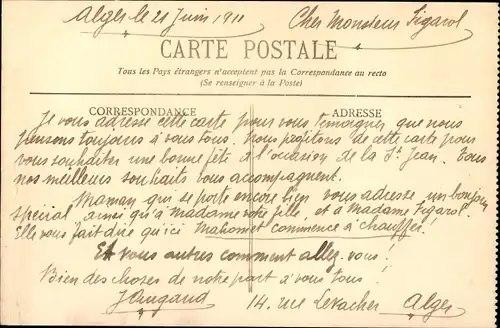 Alger le 21 Juin 1911 Cher Monsieur Figarol
CARTE POSTALE
Tous les Pays étrangers n'acceptent pas la Correspondance au recto
(Se renseigner à la Poste)
CORRESPONDANCE ADRESSE
Je vous adresse cette carte pour vous témoigner que nous
pensons toujours à vous tous. Nous profitons de cette carte pour
vous souhaiter une bonne fête à l'occasion de la St Jean. Tous
nos meilleurs souhaits vous accompagnent.
Maman qui se porte encore bien vous adresse un bonjour
spécial ainsi qu'à madame votre fille, et à Madame Figarol.
Elle vous fait dire qu'ici Mahomet commence à chauffer!
Et vous autres comment allez-vous!
Bien des choses de notre part à vous tous!
14, rue Levacher Alger